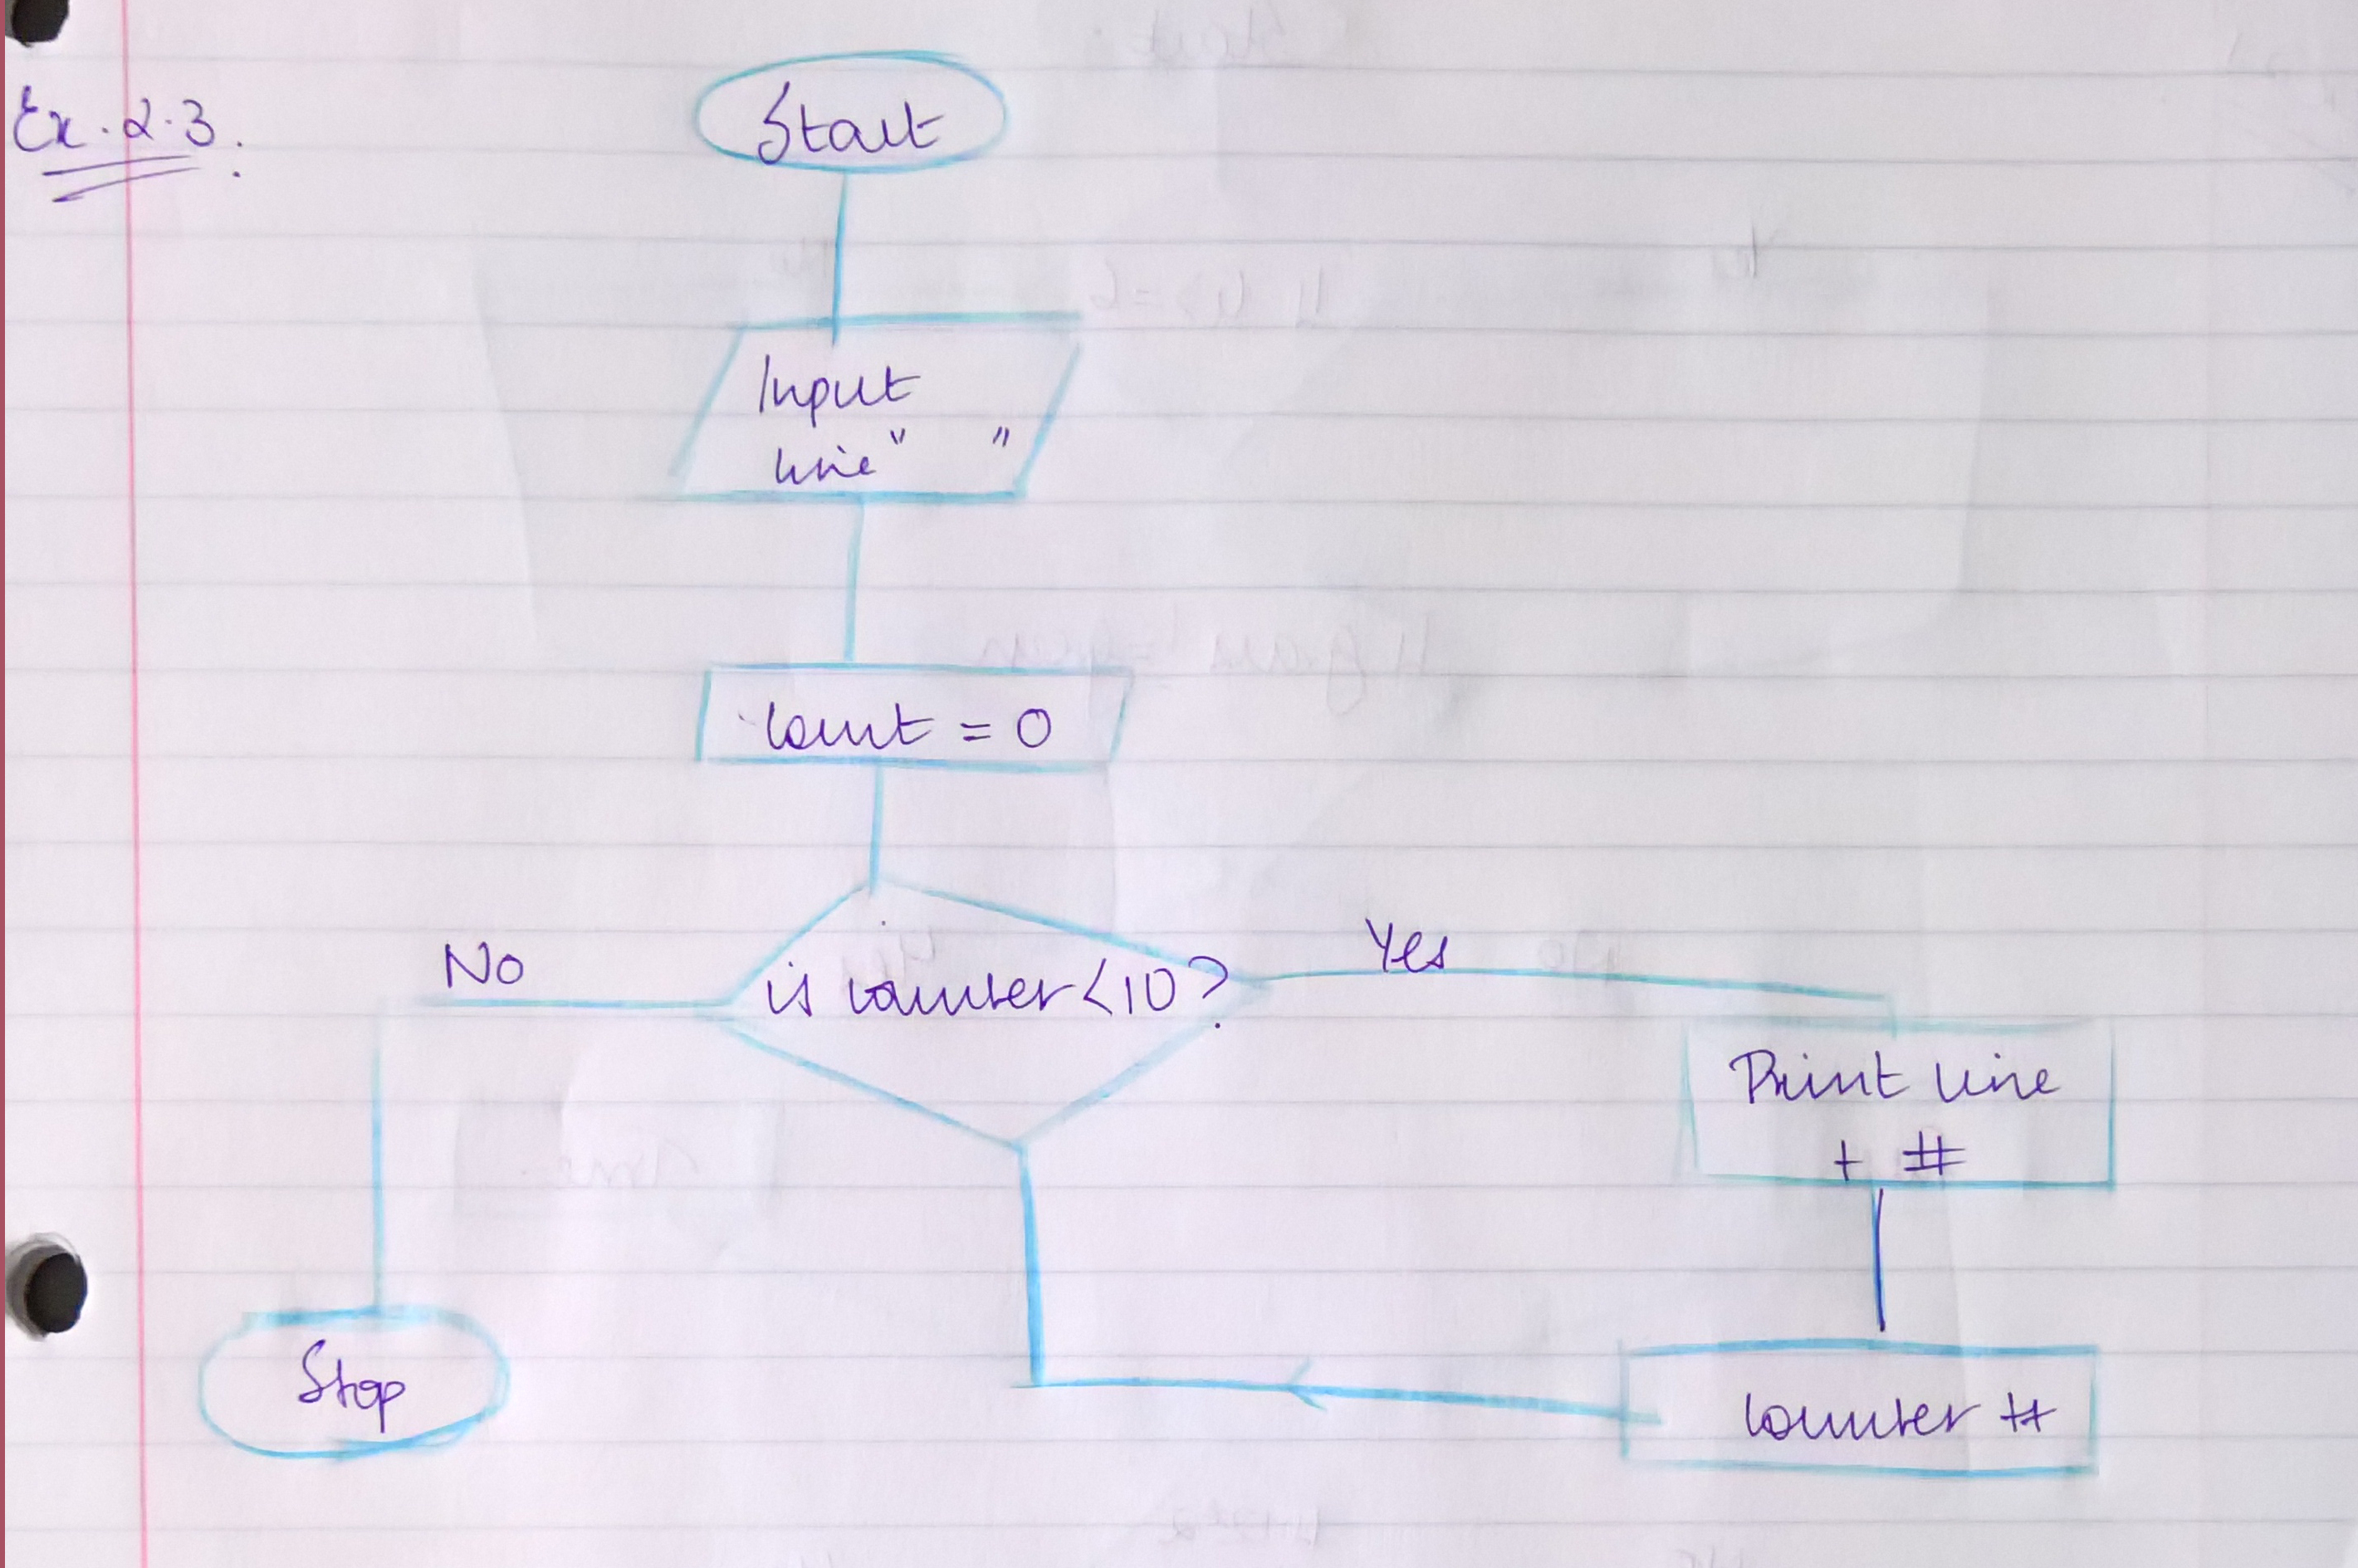 Ex.2.3.
Start
Input
line " "
Count = 0
No
is counter <10?
Yes
Print line
+ #
Stop
Counter ++